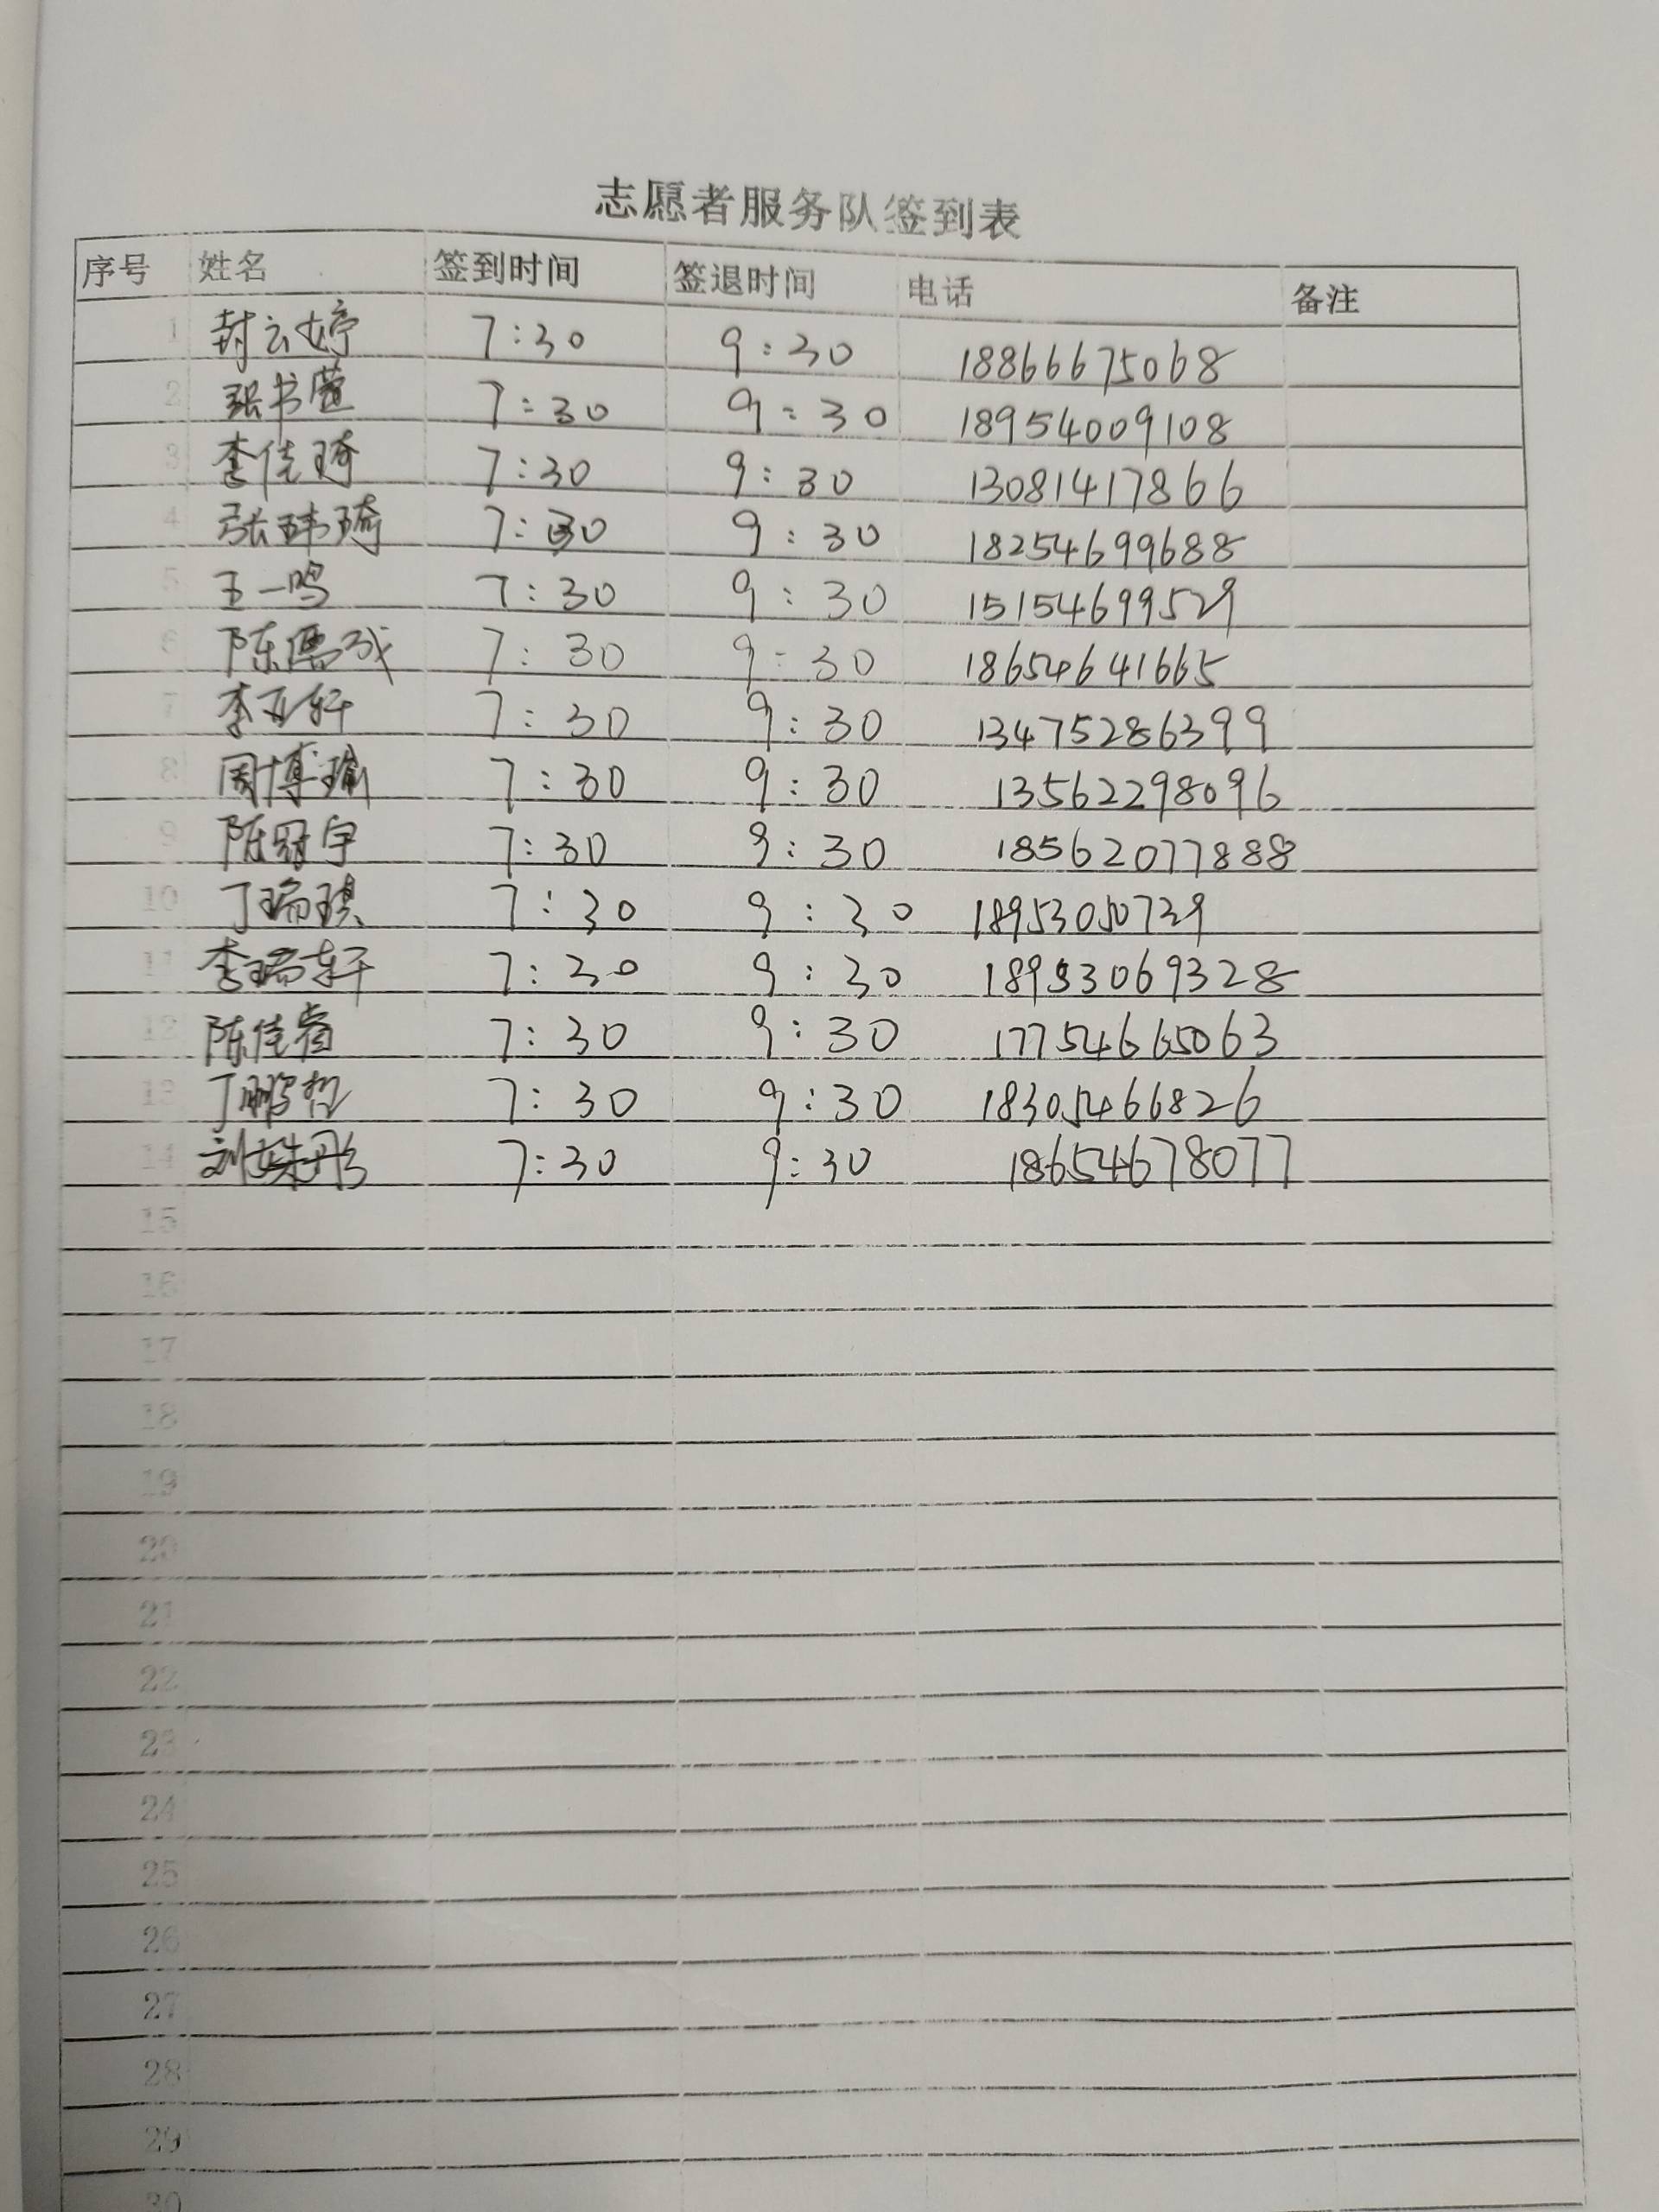 志愿者服务队签到表
序号 姓名 签到时间 签退时间 电话 备注
1 封云婷 7:30 9:30 18866675068
2 张书萱 7:30 9:30 18954009108
3 李佳琦 7:30 9:30 13081417866
4 张玮琦 7:30 9:30 18254699688
5 王一鸣 7:30 9:30 15154699529
6 陈 7:30 9:30 18654641665
7 李亚轩 7:30 9:30 13475286399
8 周博瑜 7:30 9:30 13562298096
9 陈冠宇 7:30 9:30 18562077888
10 丁瑞琪 7:30 9:30 18953050729
11 李瑞轩 7:30 9:30 18953069328
12 陈佳睿 7:30 9:30 17754665063
13 丁鹏哲 7:30 9:30 18305466826
14 刘姝彤 7:30 9:30 18654678077
15
16
17
18
19
20
21
22
23
24
25
26
27
28
29
30